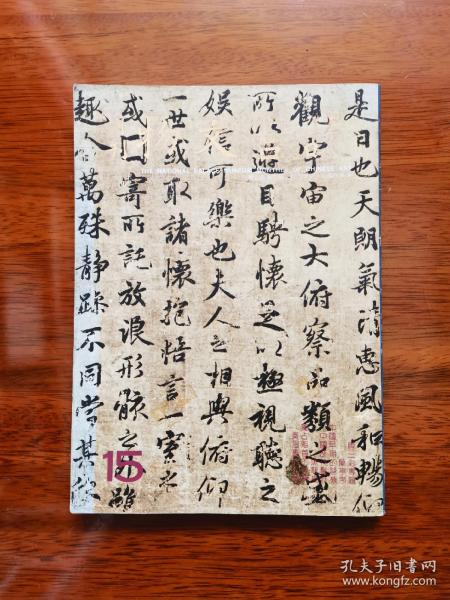 是日也天朗氣清惠風和暢仰
觀宇宙之大俯察品類之盛
所以遊目騁懷足以極視聽之
娛信可樂也夫人之相與俯仰
一世或取諸懷抱悟言一室之
或因寄所託放浪形骸之外雖
趣舍萬殊靜躁不同當其欣
THE NATIONAL PALACE MUSEUM MONTHLY OF CHINESE ART
15
孔夫子旧书网
www.kongfz.com